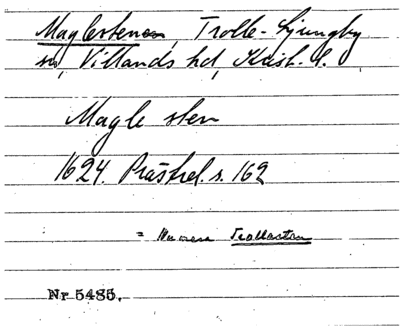 Maglestenen, Trolle-Ljungby
sn, Villands hd, Krist. l.
Magle sten
1624. Prästrel. s. 162
= Trollesten
Nr 5485.